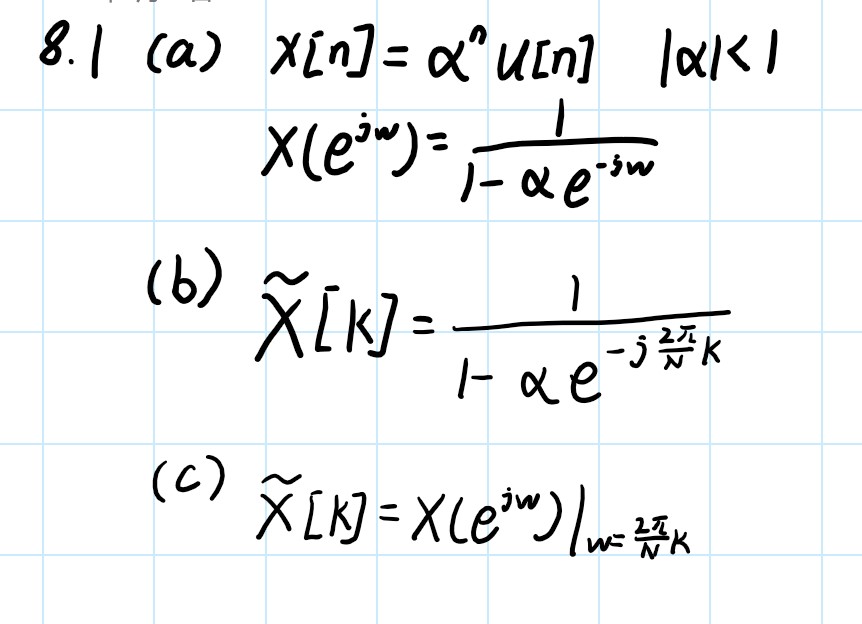 8.1 (a) x[n] = α^n u[n] |α| < 1
X(e^{jw}) = \frac{1}{1 - αe^{-jw}}
(b) \tilde{X}[k] = \frac{1}{1 - αe^{-j\frac{2π}{N}k}}
(c) \tilde{X}[k] = X(e^{jw})|_{w=\frac{2π}{N}k}